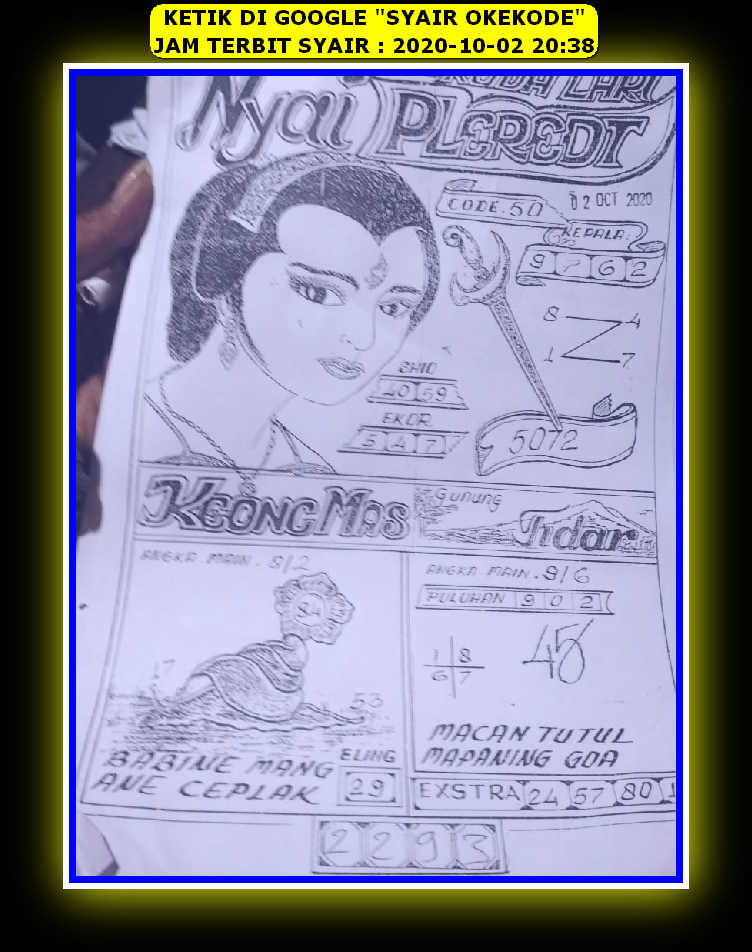 KETIK DI GOOGLE "SYAIR OKEKODE"
JAM TERBIT SYAIR : 2020-10-02 20:38
KUDA LARI
Nyai PLEREDT
CODE.50
02 OCT 2020
KEPALA:
9 7 6 2
8 4
1 7
SHIO
40 69
EKOR
5 4 7
5072
KEONG MAS
Gunung
Tidar
ANGKA. MAIN. 8/2
84
17
53
BABINE MANG
ANE CEPLAK
ELING
29
ANGKA. MAIN. 8/6
PULUHAN 9 0 2
1 8
6 7
45
MACAN TUTUL
MAPANING GOA
EXSTRA 24 57 80 1
2 2 9 3